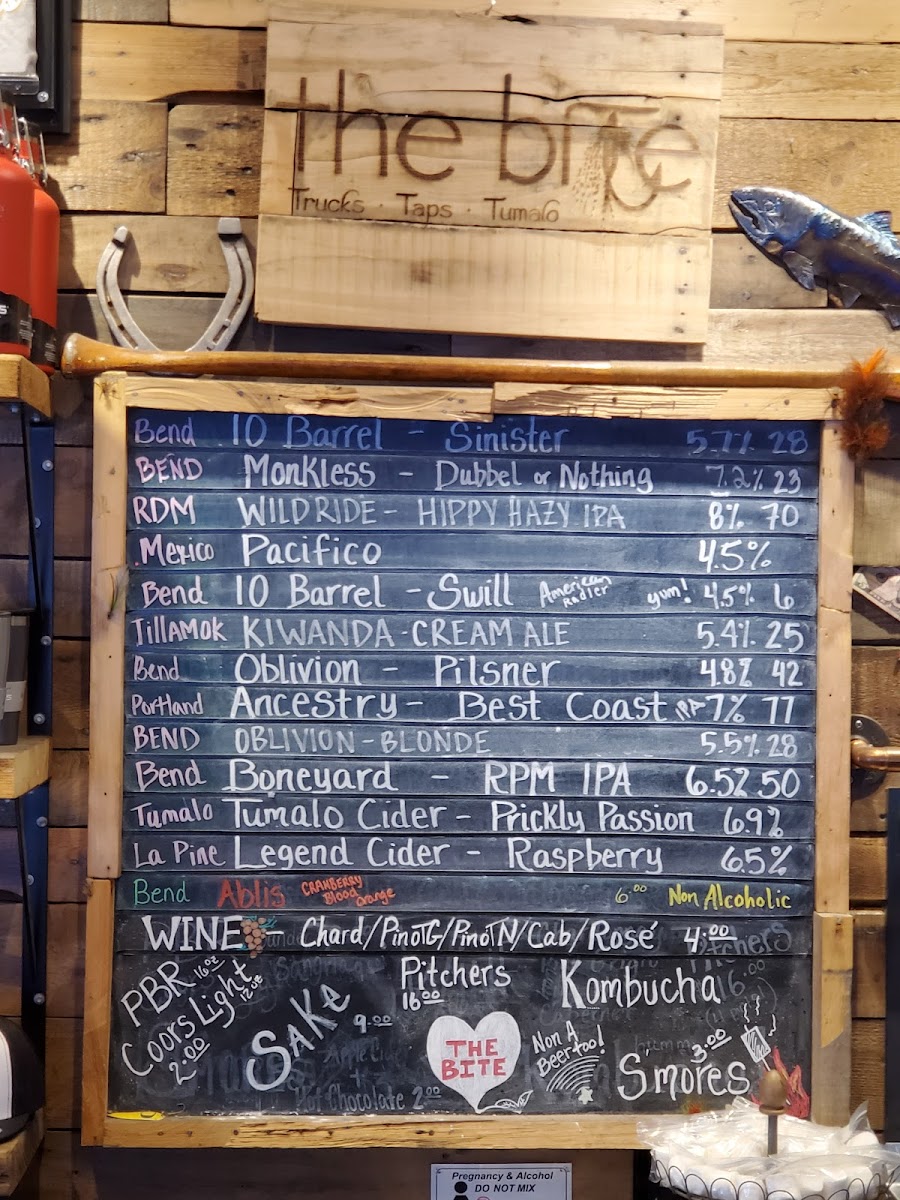 the bite
Trucks · Taps · Tumalo
Bend 10 Barrel - Sinister 5.7% 28
BEND Monkless - Dubbel or Nothing 7.2% 23
RDM WILD RIDE - HIPPY HAZY IPA 8% 70
Mexico Pacifico 4.5%
Bend 10 Barrel - Swill American Radler yum! 4.5% 6
TillAMOK KIWANDA - CREAM ALE 5.4% 25
Bend Oblivion - Pilsner 4.8% 42
Portland Ancestry - Best Coast IPA 7% 77
BEND OBLIVION - BLONDE 5.5% 28
Bend Boneyard - RPM IPA 6.5% 50
Tumalo Tumalo Cider - Prickly Passion 6.9%
La Pine Legend Cider - Raspberry 6.5%
Bend Ablis CRANBERRY Blood Orange 6.00 Non Alcoholic
WINE - Chard/PinoTG/PinoTN/Cab/Rosé 4.00
PBR 16oz
Coors Light 12oz
2.00
Sake 9.00
Pitchers
16.00
Kombucha
THE
BITE
Non A
Beer too!
3.00
S'mores
Hot Chocolate 2.00
Pregnancy & Alcohol
DO NOT MIX